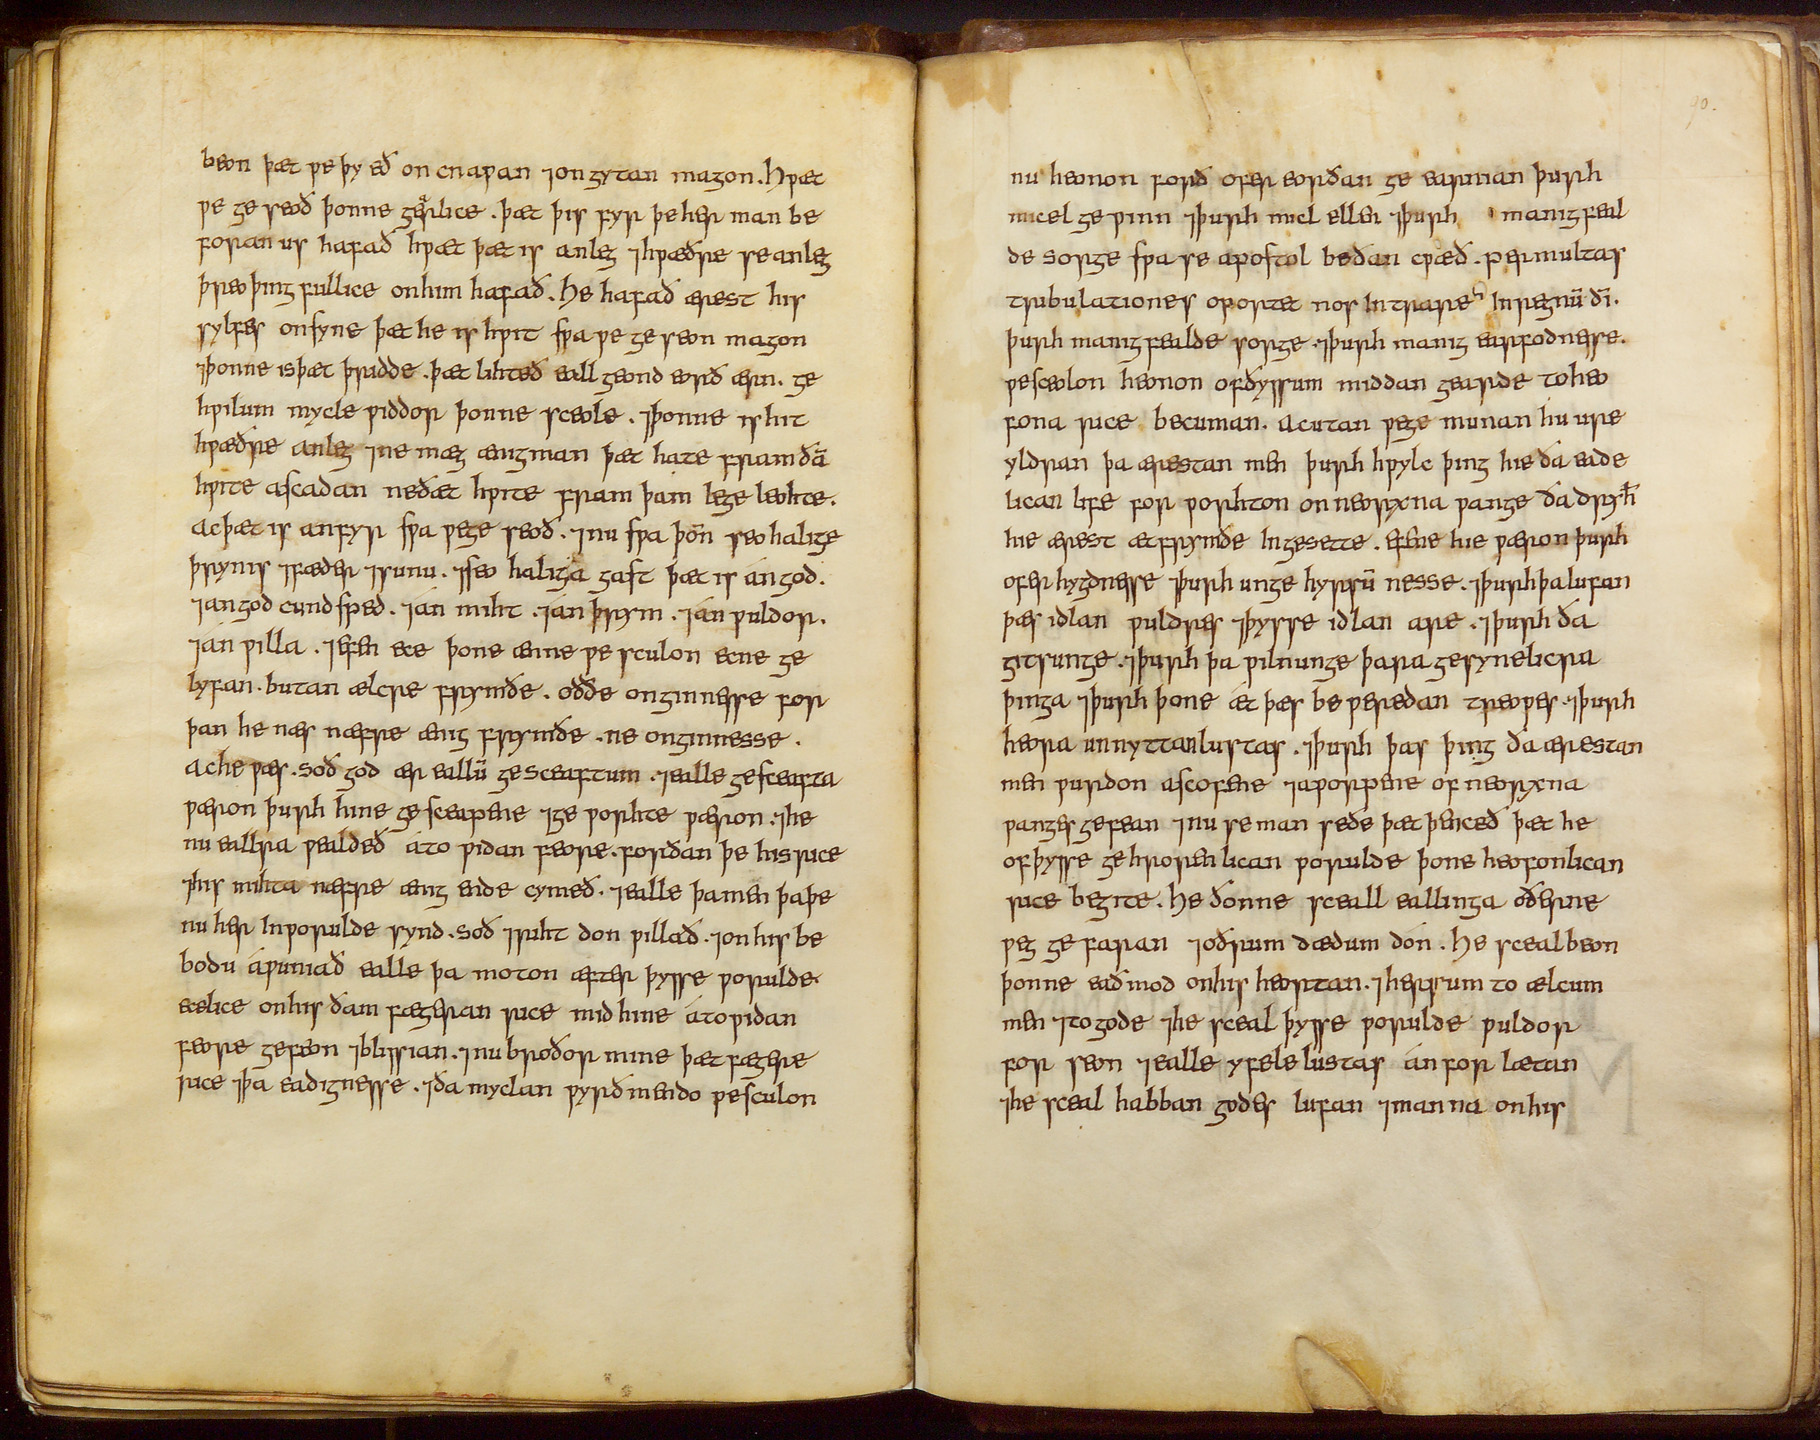 beon þæt ƿe þy eð oncnaƿan ⁊ongytan magon. Hƿæt
ƿe geseoð þonne gearlice. þæt þis fyr þe her man be
foran us hafað hƿæt þæt is anleg ⁊hƿæðre se anleg
þreo þing fullice onhim hafað. He hafað ærest his
sylfes onsyne þæt he is hƿit sƿa ƿe geseon magon
⁊þonne is þæt þridde. þæt lihteð eall geond eorð ærn. ge
hƿilum mycle ƿiddor þonne sceole. ⁊þonne is hit
hƿæðre anleg ⁊ne mæg ænig man þæt hate fram ðā
hƿite ascadan ne ðæt hƿite fram þam lege leohte.
Ac þæt is an fyr sƿa ƿe geseoð. ⁊nu sƿa þōn seo halige
þrynis ⁊fæder ⁊sunu. ⁊seo haliga gast þæt is án god.
⁊an god cund sped. ⁊án miht. ⁊án þrym. ⁊án ƿuldor.
⁊án ƿilla. ⁊efen ece þone ænne ƿe sculon ecne ge
lyfan. butan ælcre frymðe. oððe onginnesse for
þan he næs næfre ænig frymðe. ne onginnesse.
Ac he ƿæs. soð god ær eallū gesceaftum. ⁊ealle gesceafta
ƿæron þurh hine gesceapene ⁊ge ƿorhte ƿæron. ⁊he
nu ealra ƿealdeð áto ƿidan feore. forðan þe his rice
⁊his mihta næfre ænig ende cymeð. ⁊ealle þa men þa þe
nu her In ƿorulde synd. soð ⁊riht don ƿillað. ⁊on his be
bodu áƿuniað ealle þa moton æfter þysse ƿorulde.
ecelice onhis ðam fægeran rice mid hine áto ƿidan
feore gefeon ⁊blissian. ⁊nu broðor mine þæt fægere
rice ⁊þa eadignesse. ⁊ða myclan ƿyrðmendo ƿe sculon
90.
nu heonon forð ofer eorðan ge earnian þurh
micel geƿinn ⁊þurh micl ellen ⁊þurh manigfeal
de sorge sƿa se apostol beðan cƿæð. per multas
tribulationes oportet nos Intrare In regnū dī.
þurh manigfealde sorge. ⁊þurh manig earfodnesse.
ƿe sceolon heonon ofðyssum middan gearde to heo
fona rice becuman. Ac utan ƿe ge munan hu ure
yldran þa ærestan men þurh hƿylc þing hie ða eade
lican life for ƿorhton on neorxna ƿange ða dryhī
hie ærest æt frymðe In gesette. efene hie ƿæron þurh
ofer hygdnesse ⁊þurh unge hyrsū nesse. ⁊þurh þa lufan
þæs idlan ƿuldres ⁊þysse idlan are. ⁊þurh ða
gitsunge. ⁊þurh þa ƿilnunge þara gesynelicra
þinga ⁊þurh þone æt þæs be ƿeredan treoƿes. ⁊þurh
heora unnyttan lustas. ⁊þurh þas þing ða ærestan
men ƿurdon ascofene ⁊aƿorpene of neorxna
ƿanges gefean ⁊nu se man seðe þæt þenceð þæt he
of þysse gehrorenlican ƿorulde þone heofonlican
rice begite. He ðonne sceall eallinga oðerne
ƿeg ge faran ⁊oðrum dædum dón. He sceal beon
þonne eaðmod onhis heortan. ⁊hersum to ælcum
men ⁊to gode ⁊he sceal þysse ƿorulde ƿuldor
for seon ⁊ealle yfele lustas án for lætan
⁊he sceal habban godes lufan ⁊manna on his